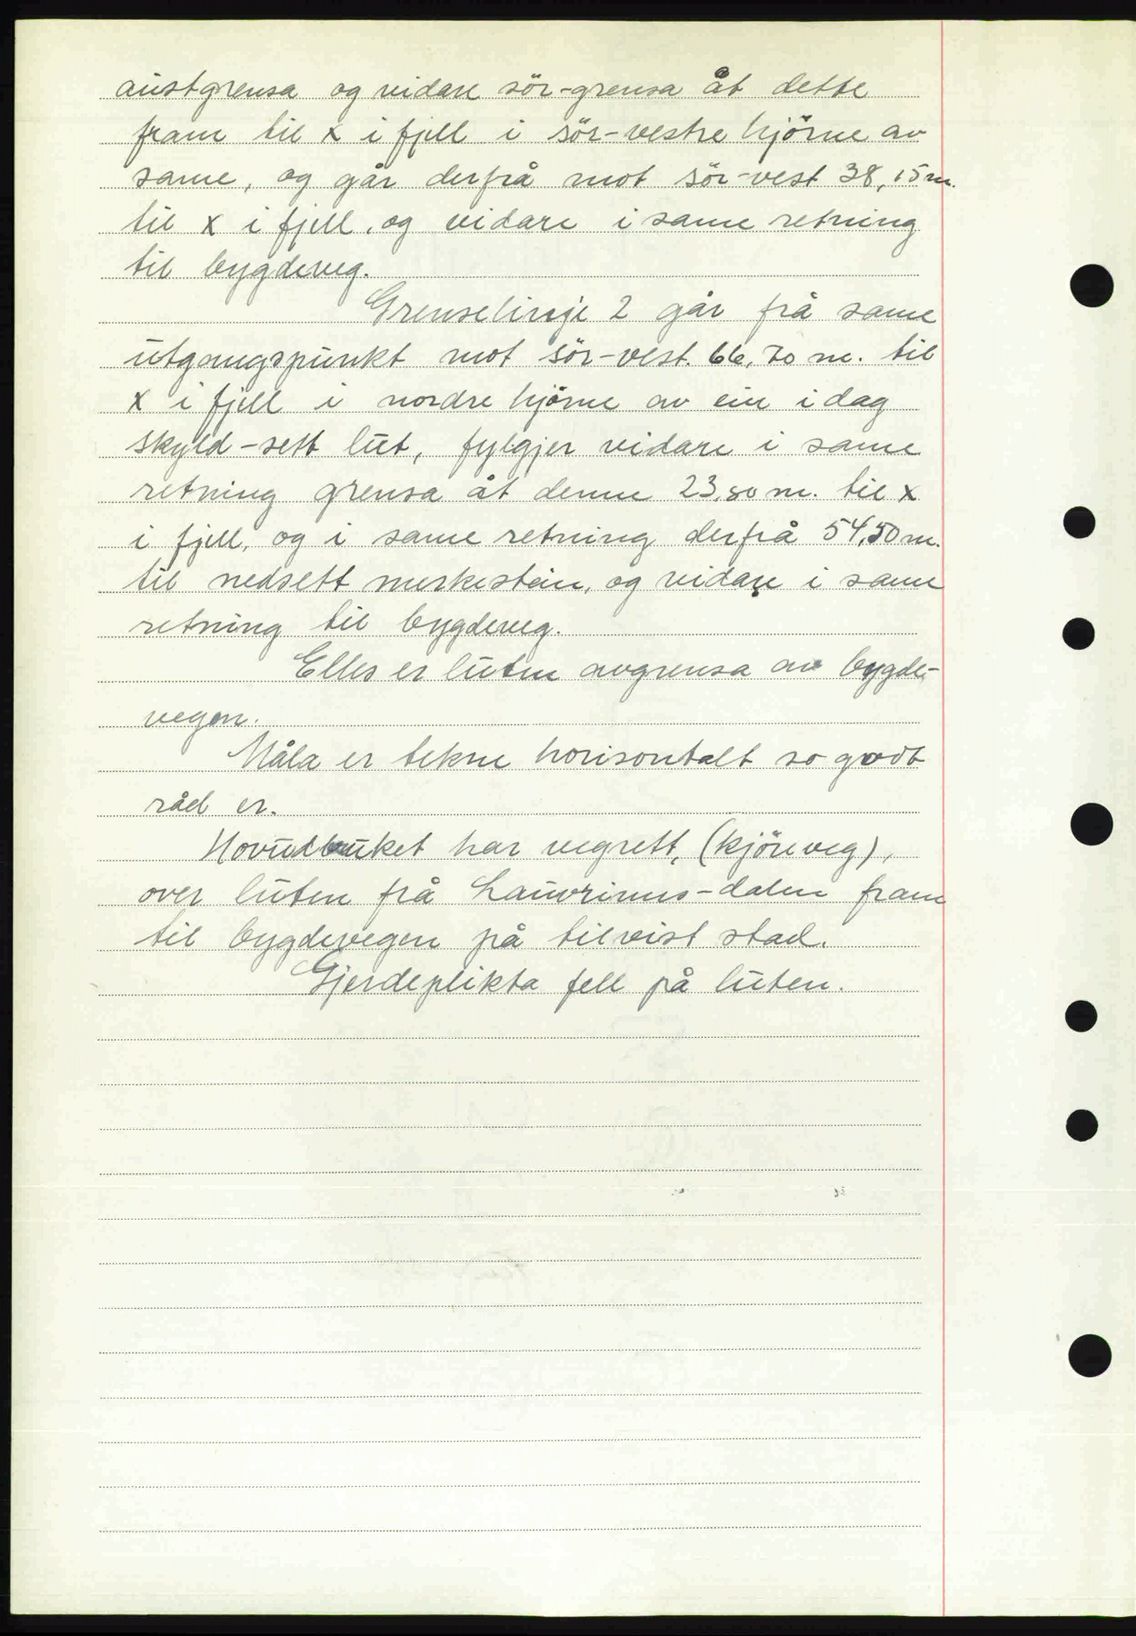 austgrensa og vidare sör-grensa åt dette
fram til x i fjell i sör-vestre hjörne av
same, og går derfrå mot sör-vest 38,15 m.
til x i fjell, og vidare i same retning
til bygdeveg.
Grenselinje 2 går frå same
utgangspunkt mot sör-vest. 66,70 m. til
x i fjell i nordre hjörne av ein i dag
skyld-sett lut, fylgjer vidare i same
retning grensa åt denne 23,80 m. til x
i fjell, og i same retning derfrå 54,50 m.
til nedsett merkestein, og vidare i same
retning til bygdeveg.
Elles er luten avgrensa av bygde-
vegen.
Måla er tekne horisontalt so godt
råd er.
Hovudbruket har vegrett, (kjöreveg),
over luten frå Lauvrinns-dalen fram
til bygdevegen på tilvist stad.
Gjerdeplikta fell på luten.